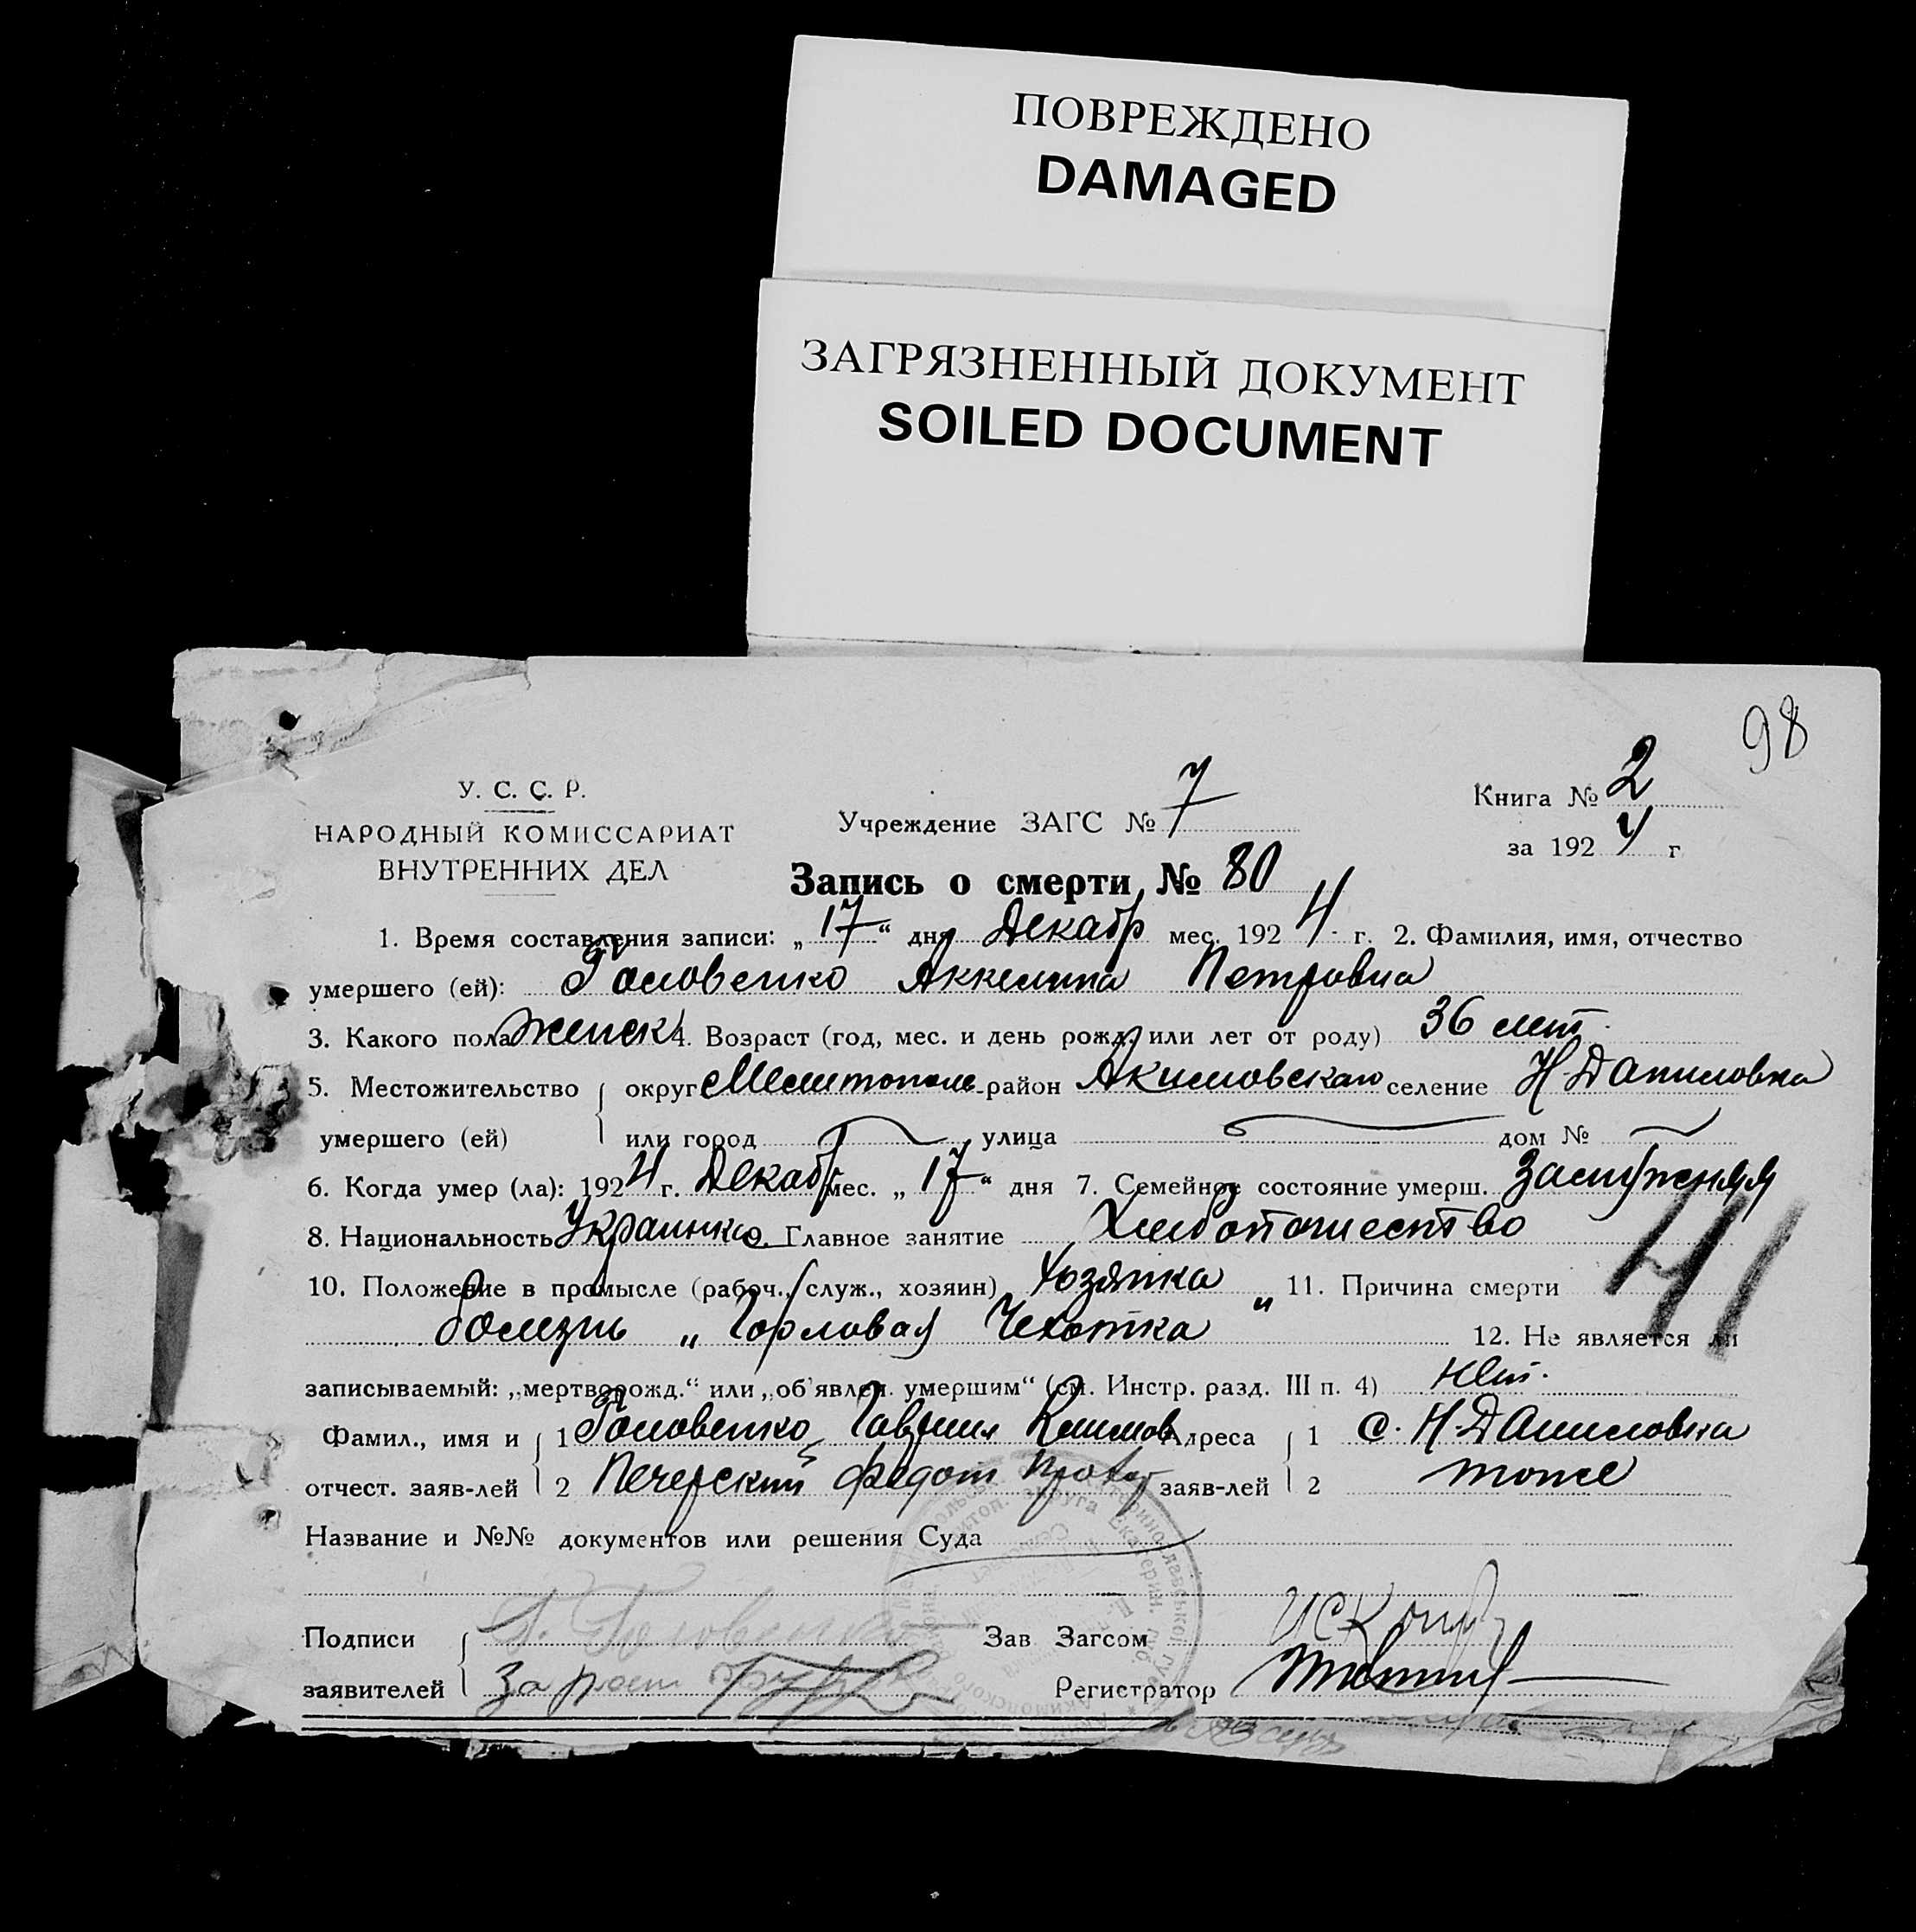 ПОВРЕЖДЕНО
DAMAGED
ЗАГРЯЗНЕННЫЙ ДОКУМЕНТ
SOILED DOCUMENT
98
У. С. С. Р.
НАРОДНЫЙ КОМИССАРИАТ
ВНУТРЕННИХ ДЕЛ
Учреждение ЗАГС № 7
Книга № 2
за 1924 г
Запись о смерти № 80
1. Время составления записи: „17“ дня Декабр мес. 1924 г. 2. Фамилия, имя, отчество
умершего (ей): Головенко Аккелина Петровна
3. Какого пола женск 4. Возраст (год, мес. и день рожд. или лет от роду) 36 лет
5. Местожительство округ Мелитополь район Акимовского селение Н-Даниловка
умершего (ей) или город улица дом №
6. Когда умер (ла): 1924 г. Декабр мес. „17“ дня 7. Семейное состояние умерш. Замужняя
8. Национальность Украинка 9. Главное занятие Хлебопашество
10. Положение в промысле (рабоч., служ., хозяин) Хозяйка 11. Причина смерти
болезнь „Горловая Чехотка" 12. Не является ли
41
записываемый: „мертворожд.“ или „об'явлен. умершим“ (см. Инстр. разд. III п. 4) нет.
Фамил., имя и 1 Головенко Гавриил Климов Адреса 1 с. Н-Даниловка
отчест. заяв-лей 2 Печерский Федот заяв-лей 2 тоже
Название и №№ документов или решения Суда
Подписи Г. Головенко Зав Загсом
заявителей За Регистратор